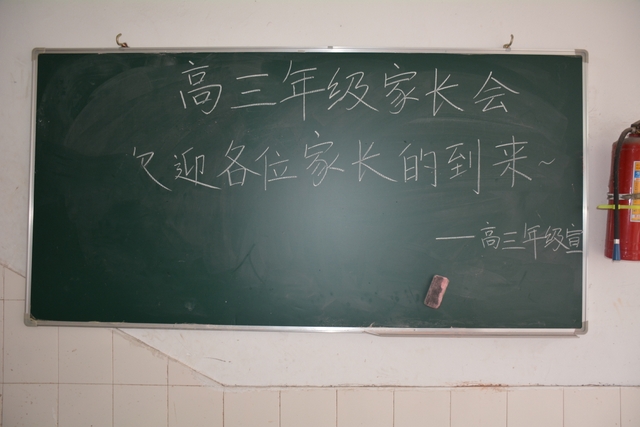 高三年级家长会
欢迎各位家长的到来~
—高三年级宣